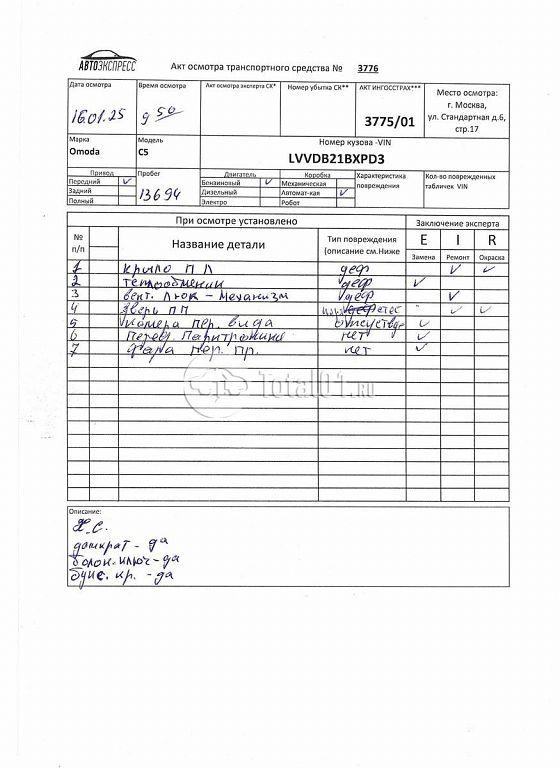 АВТОЭКСПРЕСС
Акт осмотра транспортного средства № 3776
Дата осмотра
16.01.25
Время осмотра
9 50
Акт осмотра эксперта СК*
Номер убытка СК**
АКТ ИНГОССТРАХ***
3775/01
Место осмотра:
г. Москва,
ул. Стандартная д.6,
стр.17
Марка
Omoda
Модель
C5
Номер кузова -VIN
LVVDB21BXPD3
Привод
Передний ✓
Задний
Полный
Пробег
13694
Двигатель
Бензиновый ✓
Дизельный
Электро
Коробка
Механическая
Автомат-кая ✓
Робот
Характеристика
повреждения
Кол-во поврежденных
табличек VIN
При осмотре установлено
Заключение эксперта
№
п/п
Название детали
Тип повреждения
(описание см.Ниже
E I R
Замена Ремонт Окраска
1 крыло П Л деф ✓ ✓
2 теплообменник деф ✓
3 вент. люк - механизм деф ✓
4 дверь ПП ✓ ✓
5 камера пер. вида отсутствует ✓
6 перед. нет ✓
7 фара пер. пр. нет ✓
Total01.ru
Описание:
Х.С.
домкрат - да
балон. ключ - да
букс. кр. - да